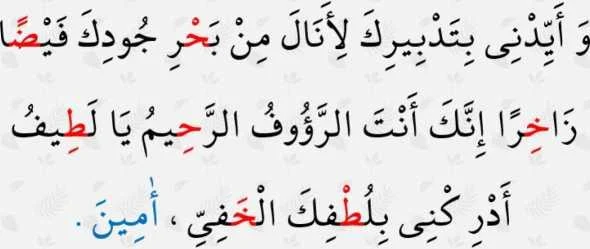 وَ أَيِّدْنِى بِتَدْبِيرِكَ لِأَنَالَ مِنْ بَحْرِ جُودِكَ فَيْضًا
زَاخِرًا إِنَّكَ أَنْتَ الرَّؤُوفُ الرَّحِيمُ يَا لَطِيفُ
أَدْرِ كْنِى بِلُطْفِكَ الْخَفِىِّ ، أٰمِينَ .